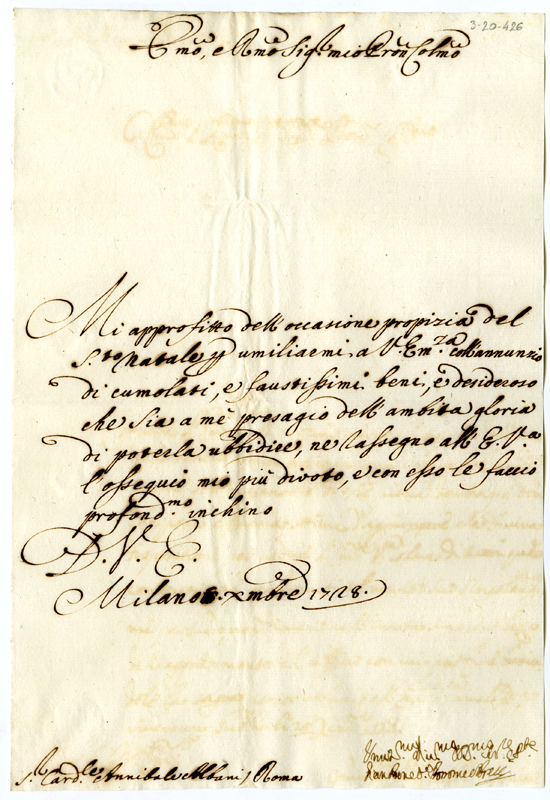 3-20-426
Emo, e Rmo Sigr. mio Pron Colmo
Mi approfitto dell'occasione propizia del
S.to Natale p umiliarmi a V. Em.za coll'annunzio
di cumolati, e faustissimi beni, e desideroso
che sia a me presagio dell'ambita gloria
di poterla ubbidire, ne rassegno all'E. V.a
l'ossequio mio più divoto, e con esso le faccio
profond.mo inchino
D. V. E.
Milano 8. Xmbre 1728.
S.r Card.le Annibale Albani / Roma